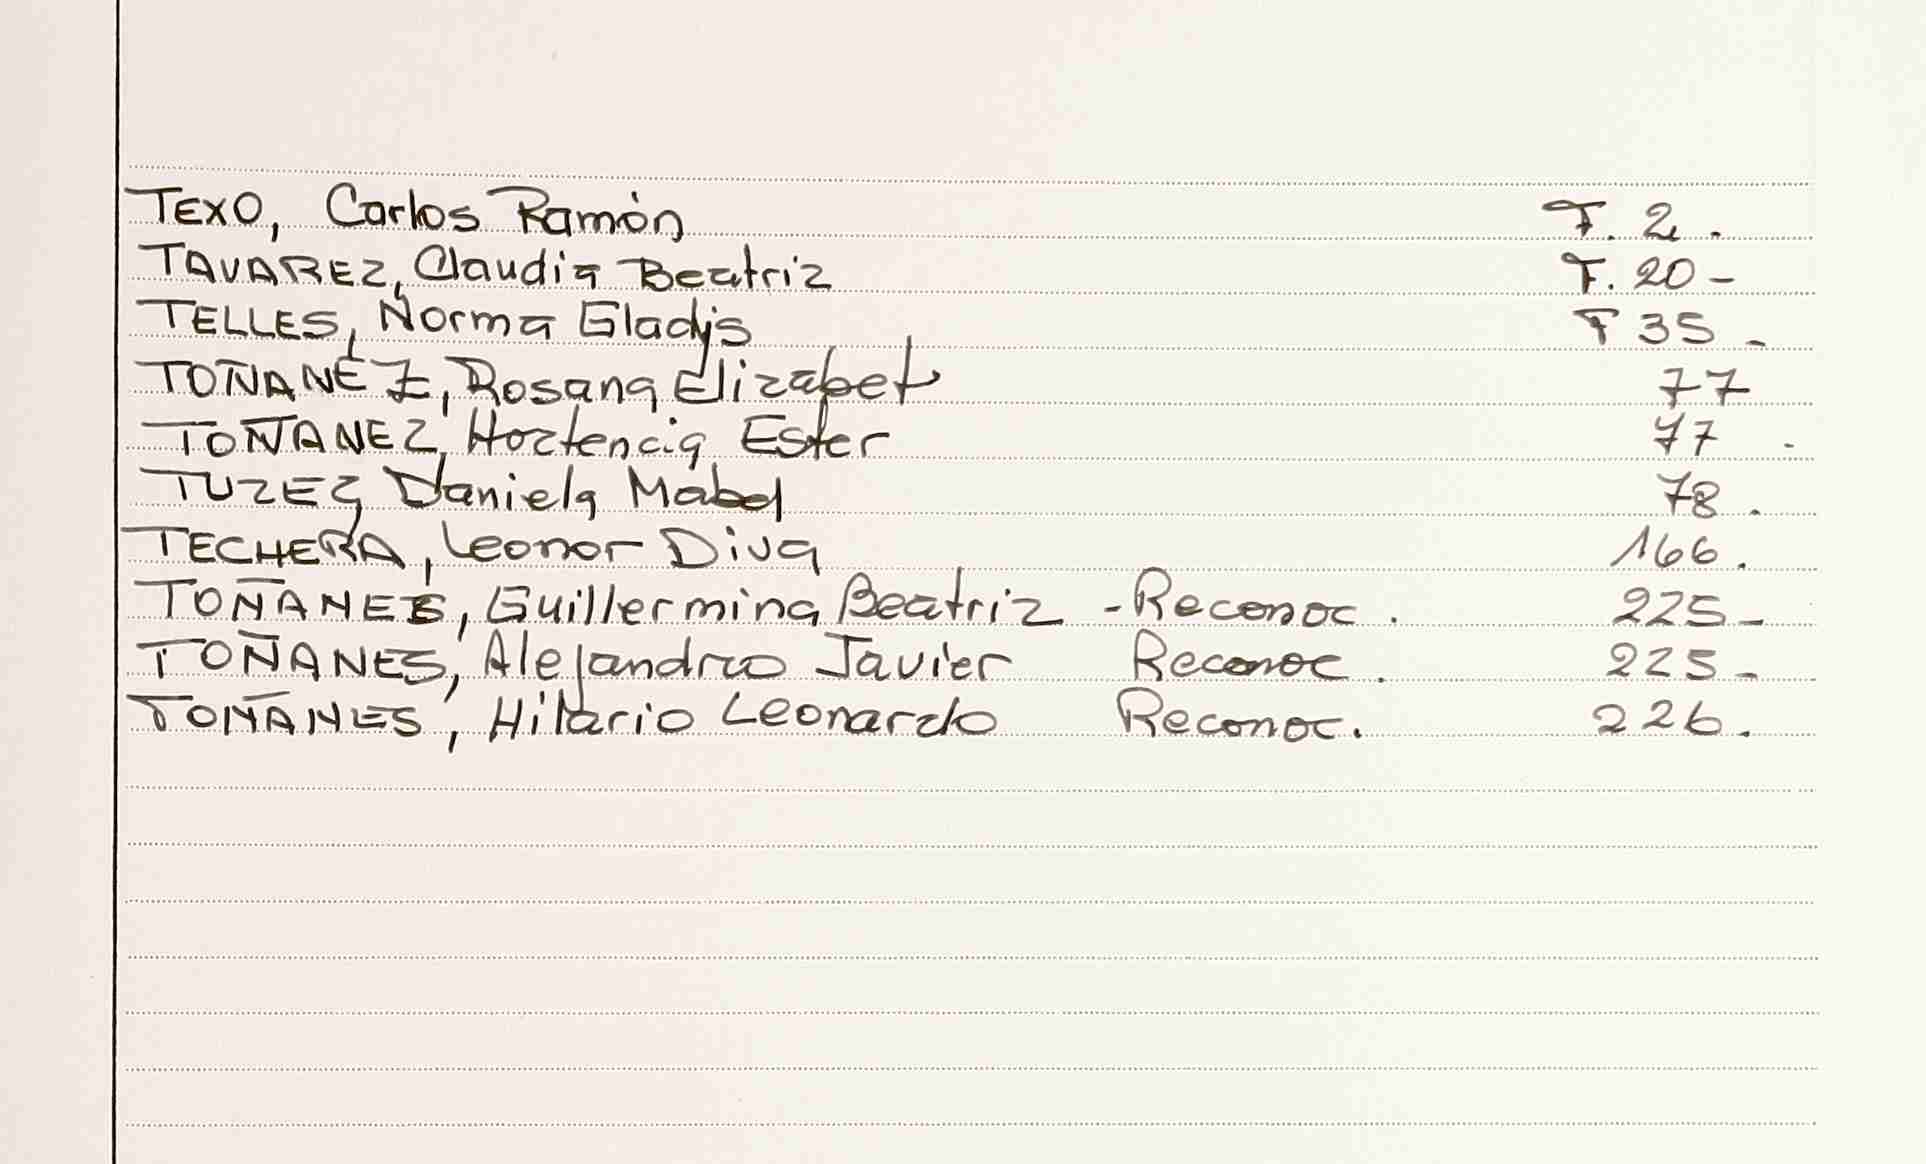 TEXO, Carlos Ramón F. 2.
TAVAREZ, Claudia Beatriz F. 20-
TELLES, Norma Gladis F 35-
TOÑANEZ, Rosana Elizabet 77
TOÑANEZ, Hortencia Ester 77-
TUZEZ, Daniela Mabel 78.
TECHERA, Leonor Diva 166.
TOÑANES, Guillermina Beatriz -Reconoc. 225-
TOÑANES, Alejandro Javier Reconoc. 225-
TOÑANES, Hilario Leonardo Reconoc. 226.